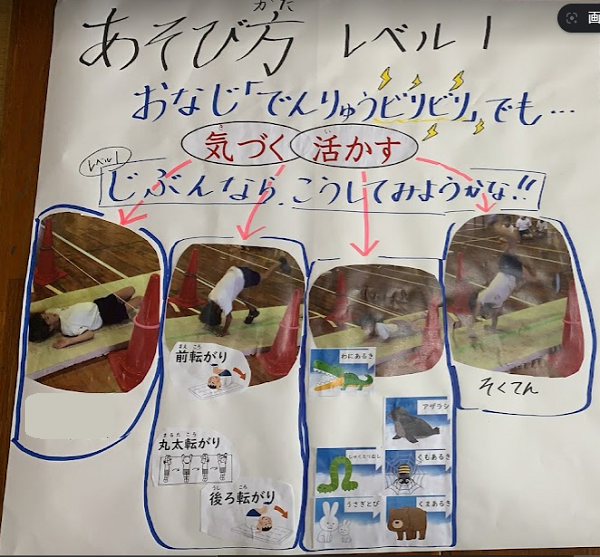 かた
あそび方 レベル1
おなじ「でんりゅうビリビリ」でも…
気づく 活かす
レベル1
じぶんなら、こうしてみようかな!!
まえ ころ
前転がり
まるた ころ
丸太転がり
うし ころ
後ろ転がり
わにあるき
アザラシ
しゃくとりむし
くもあるき
うさぎとび
くまあるき
そくてん
画